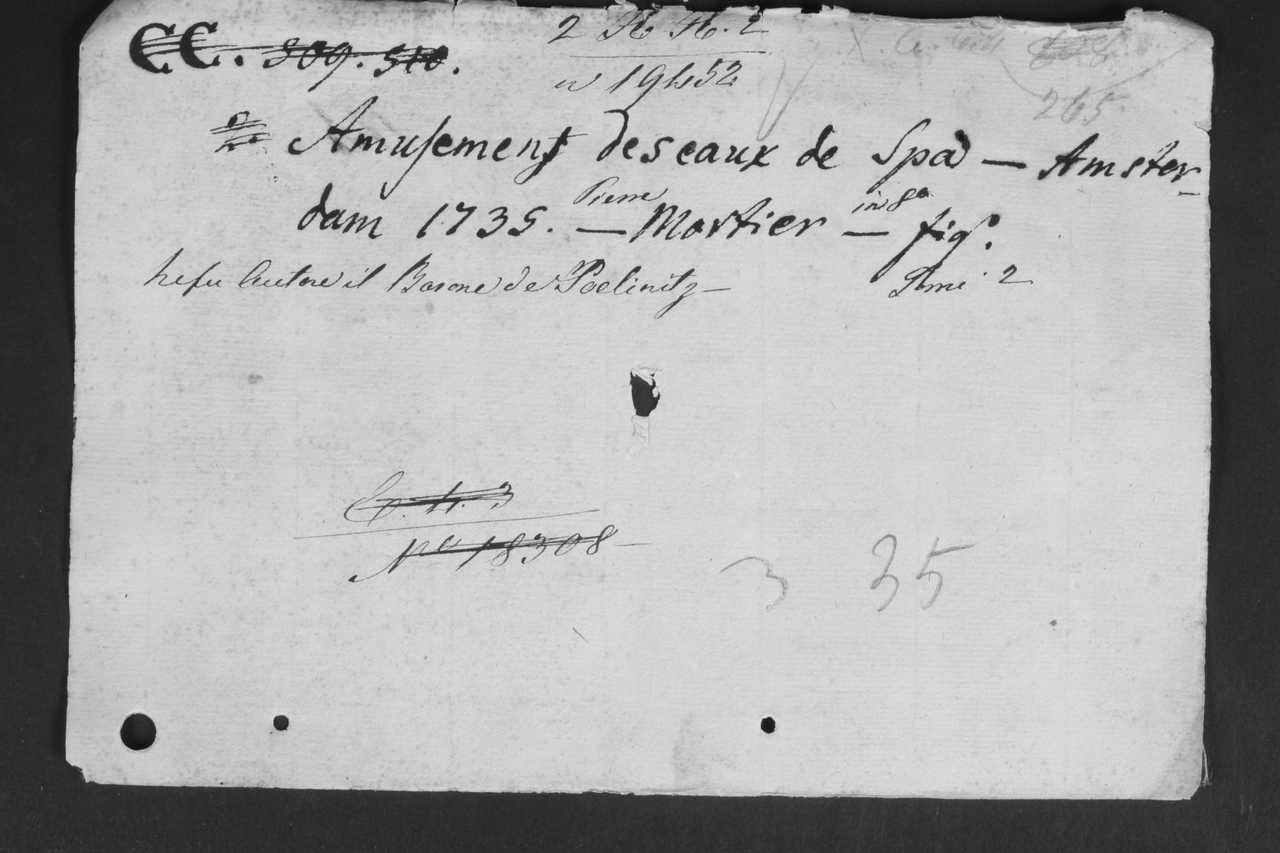 CC. 309. 310.
2 H. H. 2
n 19452
265
Amusement des eaux de Spa — Amster-
dam 1735. — Pierre Mortier — in 8º fig.
ne fu Autore il Barone de Poelinitz — Tomi 2
Nº 18308
3 35